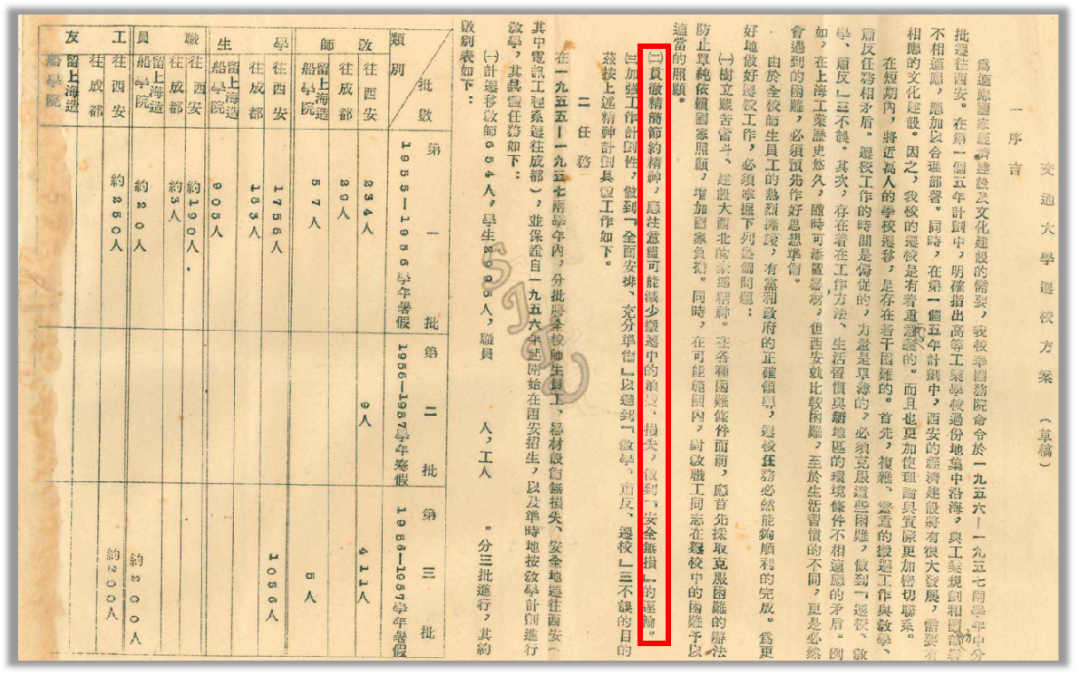 交通大學遷校方案（草稿）
一 序言
為適應國家經濟建設及文化建設的需要，我校奉國務院命令於一九五六—一九五七兩學年中分
批遷往西安。在第一個五年計劃中，明確指出高等工業學校過份地集中沿海，與工業規劃和國防
不相適應，應加以合理部署。同時，在第一個五年計劃中，西安的經濟建設將有很大發展，需要有
相應的文化建設。因之，我校的遷校是有着重大意義的。而且也更加使理論與實際更加密切聯系。
在短期內，將近萬人的學校遷移，是存在若干困難的。首先，複雜、繁重的搬運工作與教學、
肅反任務相矛盾。遷校工作的時間是侷促的，力量是單薄的，必須克服這些困難，做到「遷校、教
學、肅反」三不誤。其次，存在着在工作方法、生活習慣與新地區的環境條件不相適應的矛盾。例
如，在上海工業歷史悠久，隨時可添置器材，但西安就比較困難，至於生活習慣的不同，更是必然
會遇到的困難，必須預先作好思想準備。
由於全校師生員工的熱烈擁護，有黨和政府的正確領導，遷校任務必然能夠順利的完成。為更
好地做好遷校工作，必須掌握下列幾個問題：
㈠樹立艱苦奮斗、建設大西北的 精神。在各種困難條件面前，應首先採取克服困難的辦法
防止單純依賴國家照顧，增加國家負擔。同時，在可能範圍內，對教職工同志在遷校中的困難予以
適當的照顧。
㈡貫徹精簡節約精神，應注意儘可能減少搬遷中的浪費、損失，做到「安全無損」的運輸。
㈢加強工作計劃性，做到「全面安排、充分準備」以達到「教學、肅反、遷校」三不誤的目的
茲按上述精神計劃具體工作如下。
二 任務
在一九五五—一九五七兩學年內，分批將全校師生員工、器材設備無損失、安全地遷往西安（
其中電訊工程系遷往成都），並保證自一九五六年起開始在西安招生，以及準時地按教學計劃進行
教學，其具體任務如下：
㈠計遷移教師654人，學生 人，職員 人，工人 。分三批進行，其約
數列表如下：
類別 批數 第一批 1955—1956學年暑假 第二批 1956—1957學年寒假 第三批 1956—1957學年暑假
教師 往西安 234人 9人 411人
往成都 29人
留上海造船學院 57人 5人
學生 往西安 1756人 1056人
往成都 153人
留上海造船學院 905人
職員 往西安 約190人
往成都 約3人
留上海造船學院 約20人 約200人
工友 往西安 約250人 約200人
往成都
留上海造船學院
SJTU